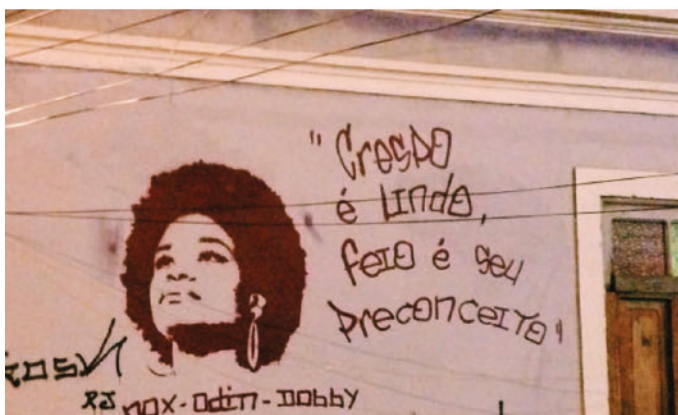 "Crespo
é lindo,
feio é seu
preconceito"
RJ nox-odin-dobby